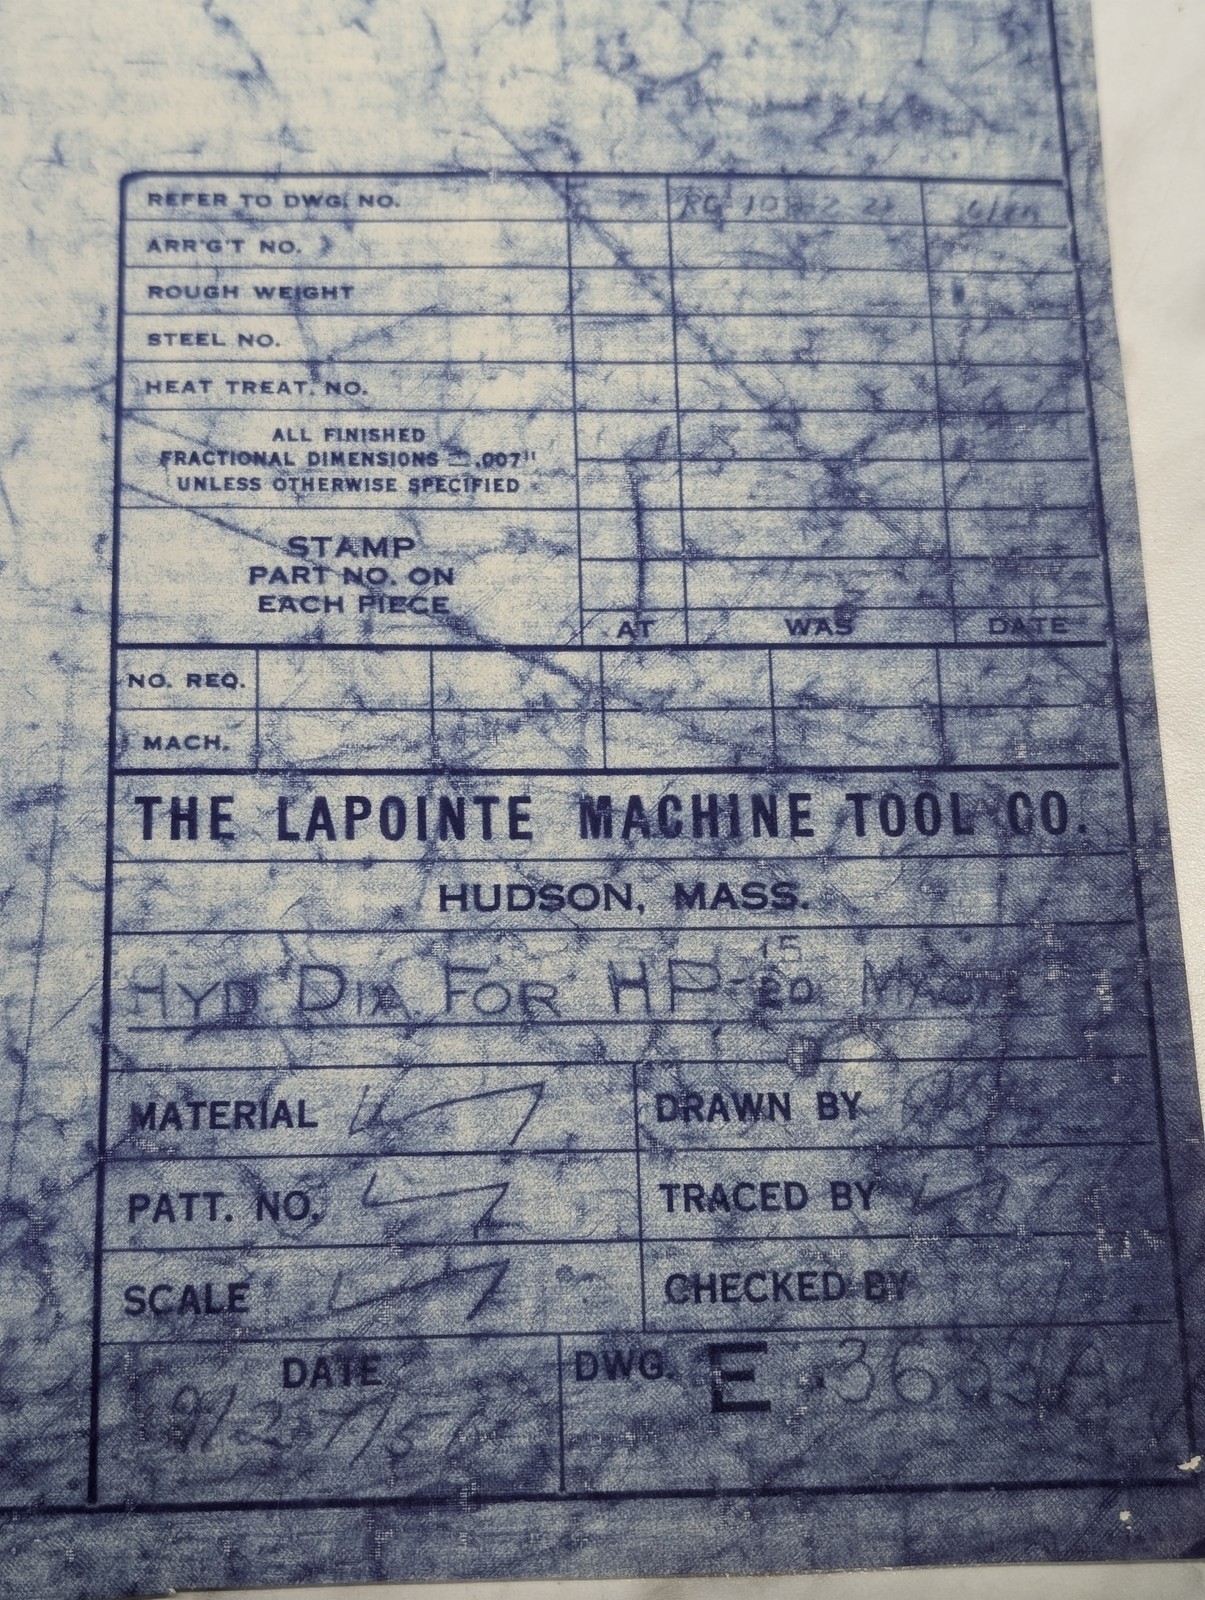 REFER TO DWG. NO.
ARR'G'T NO.
ROUGH WEIGHT
STEEL NO.
HEAT TREAT. NO.
ALL FINISHED
FRACTIONAL DIMENSIONS ± .007"
UNLESS OTHERWISE SPECIFIED
STAMP
PART NO. ON
EACH PIECE
AT WAS DATE
NO. REQ.
MACH.
THE LAPOINTE MACHINE TOOL CO.
HUDSON, MASS.
15
HYD DIA. FOR HP-20 MACH
MATERIAL DRAWN BY
PATT. NO. TRACED BY
SCALE CHECKED BY
DATE DWG. E